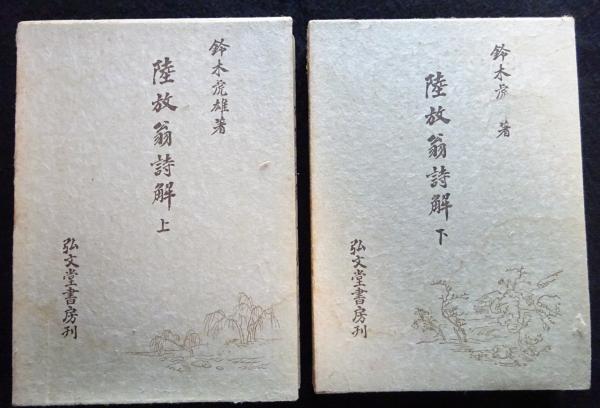 鈴木虎雄著
陸放翁詩解 上
弘文堂書房刊
鈴木虎 著
陸放翁詩解 下
弘文堂書房刊